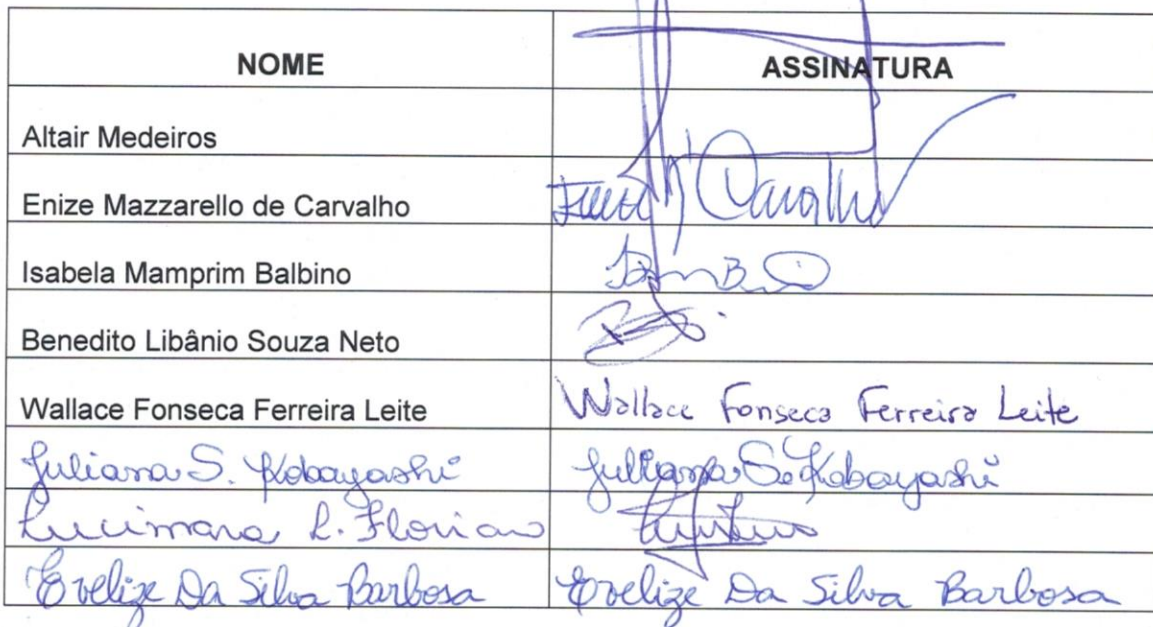 NOME ASSINATURA
Altair Medeiros
Enize Mazzarello de Carvalho Carvalho
Isabela Mamprim Balbino
Benedito Libânio Souza Neto
Wallace Fonseca Ferreira Leite Wallace Fonseca Ferreira Leite
Juliana S. Kobayashi Juliana S. Kobayashi
Lucimara L. Floriano
Evelize Da Silva Barbosa Evelize Da Silva Barbosa